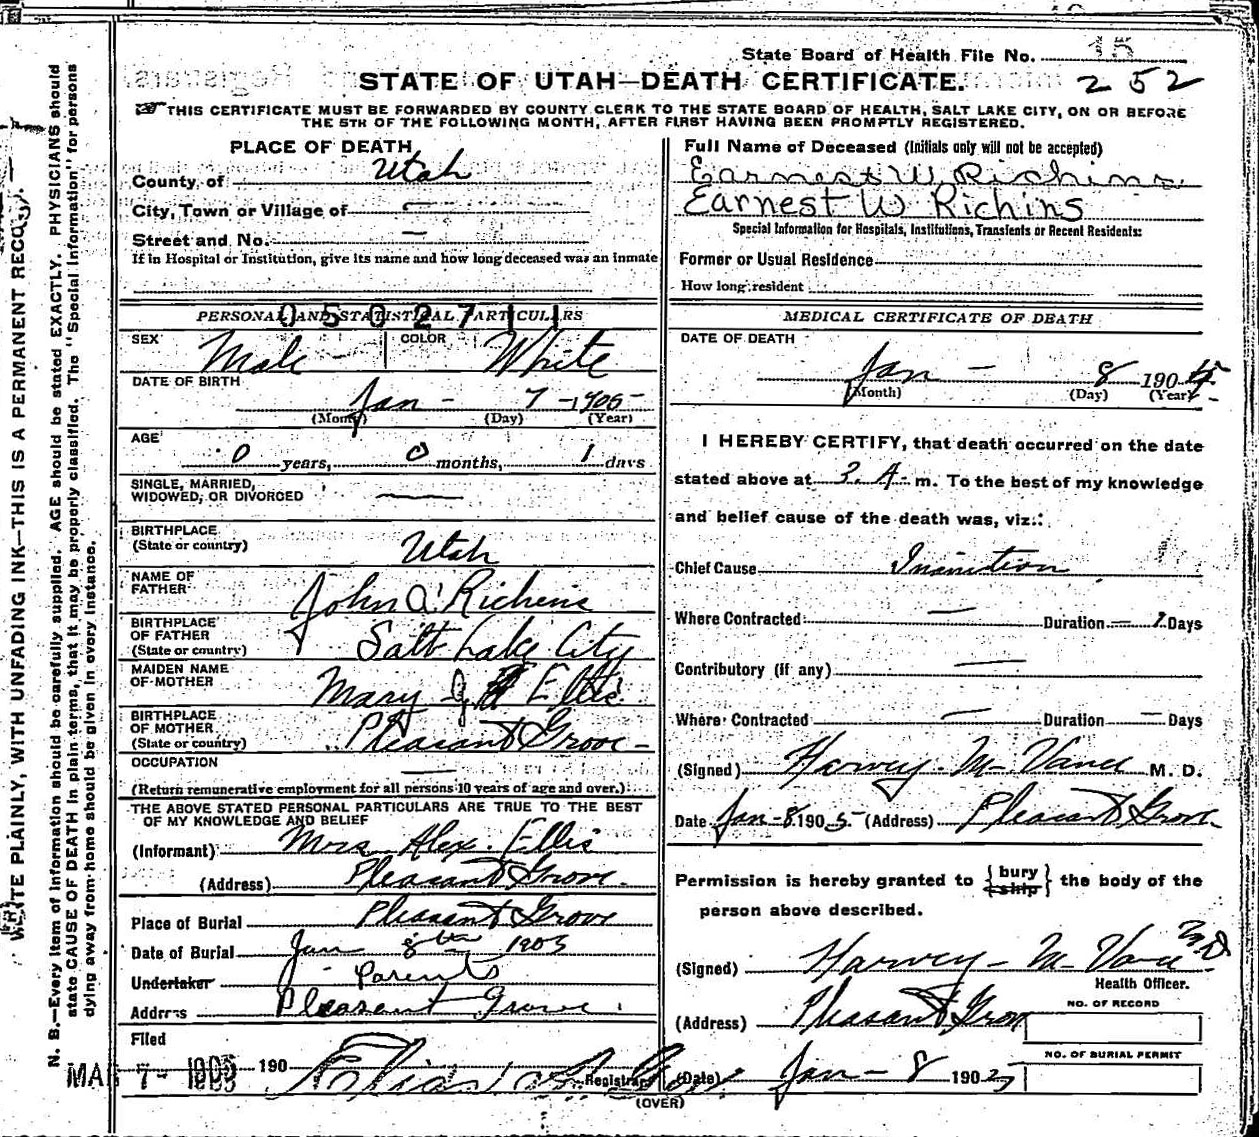 State Board of Health File No. 15
STATE OF UTAH—DEATH CERTIFICATE. 252
THIS CERTIFICATE MUST BE FORWARDED BY COUNTY CLERK TO THE STATE BOARD OF HEALTH, SALT LAKE CITY, ON OR BEFORE
THE 5TH OF THE FOLLOWING MONTH, AFTER FIRST HAVING BEEN PROMPTLY REGISTERED.
WRITE PLAINLY, WITH UNFADING INK—THIS IS A PERMANENT RECORD.
N. B.—Every item of information should be carefully supplied. AGE should be stated EXACTLY. PHYSICIANS should
state CAUSE OF DEATH in plain terms, that it may be properly classified. The "Special Information" for persons
dying away from home should be given in every instance.
PLACE OF DEATH
County of Utah
City, Town or Village of —
Street and No. —
If in Hospital or Institution, give its name and how long deceased was an inmate
0502711
PERSONAL AND STATISTICAL PARTICULARS
SEX Male COLOR White
DATE OF BIRTH
Jan - 7 - 1905
(Month) (Day) (Year)
AGE
0 years, 0 months, 1 days
SINGLE, MARRIED,
WIDOWED, OR DIVORCED —
BIRTHPLACE
(State or country) Utah
NAME OF
FATHER John A. Richins
BIRTHPLACE
OF FATHER
(State or country) Salt Lake City
MAIDEN NAME
OF MOTHER Mary J Ellis
BIRTHPLACE
OF MOTHER
(State or country) Pleasant Grove -
OCCUPATION —
(Return remunerative employment for all persons 10 years of age and over.)
THE ABOVE STATED PERSONAL PARTICULARS ARE TRUE TO THE BEST
OF MY KNOWLEDGE AND BELIEF
(Informant) Mrs Alex. Ellis
(Address) Pleasant Grove.
Place of Burial Pleasant Grove
Date of Burial Jan 8th 1905
Undertaker Parents
Address Pleasant Grove
Filed
MAR 7- 1905 190 Registrar
Full Name of Deceased (Initials only will not be accepted)
Earnest W Richins
Earnest W Richins
Special Information for Hospitals, Institutions, Transients or Recent Residents:
Former or Usual Residence
How long resident
MEDICAL CERTIFICATE OF DEATH
DATE OF DEATH
Jan - 8 1905
(Month) (Day) (Year)
I HEREBY CERTIFY, that death occurred on the date
stated above at 3. A. m. To the best of my knowledge
and belief cause of the death was, viz.:
Chief Cause Inanition
Where Contracted — Duration — 1 Days
Contributory (if any) —
Where Contracted — Duration — Days
(Signed) Harvey M Vance M. D.
Date Jan - 8 1905 - (Address) Pleasant Grove
Permission is hereby granted to { bury ship } the body of the
person above described.
(Signed) Harvey - M - Vance MD
Health Officer.
(Address) Pleasant Grove
NO. OF RECORD
NO. OF BURIAL PERMIT
(Date) Jan - 8 1905
(OVER)